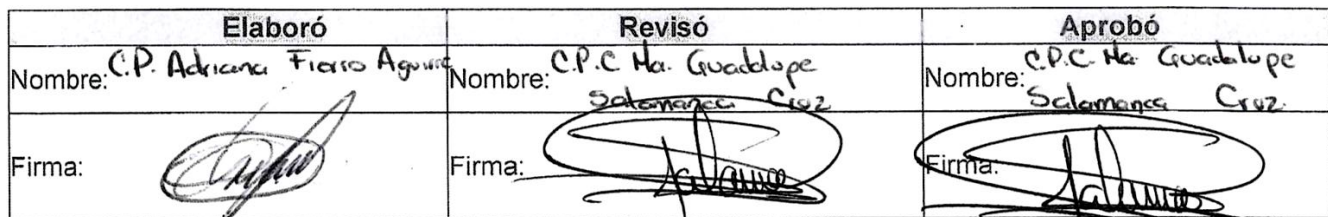 Elaboró Revisó Aprobó
Nombre: C.P. Adriana Fierro Aguirre Nombre: C.P.C Ma. Guadalupe Salamanca Cruz Nombre: C.P.C. Ma. Guadalupe Salamanca Cruz
Firma: Firma: Firma: